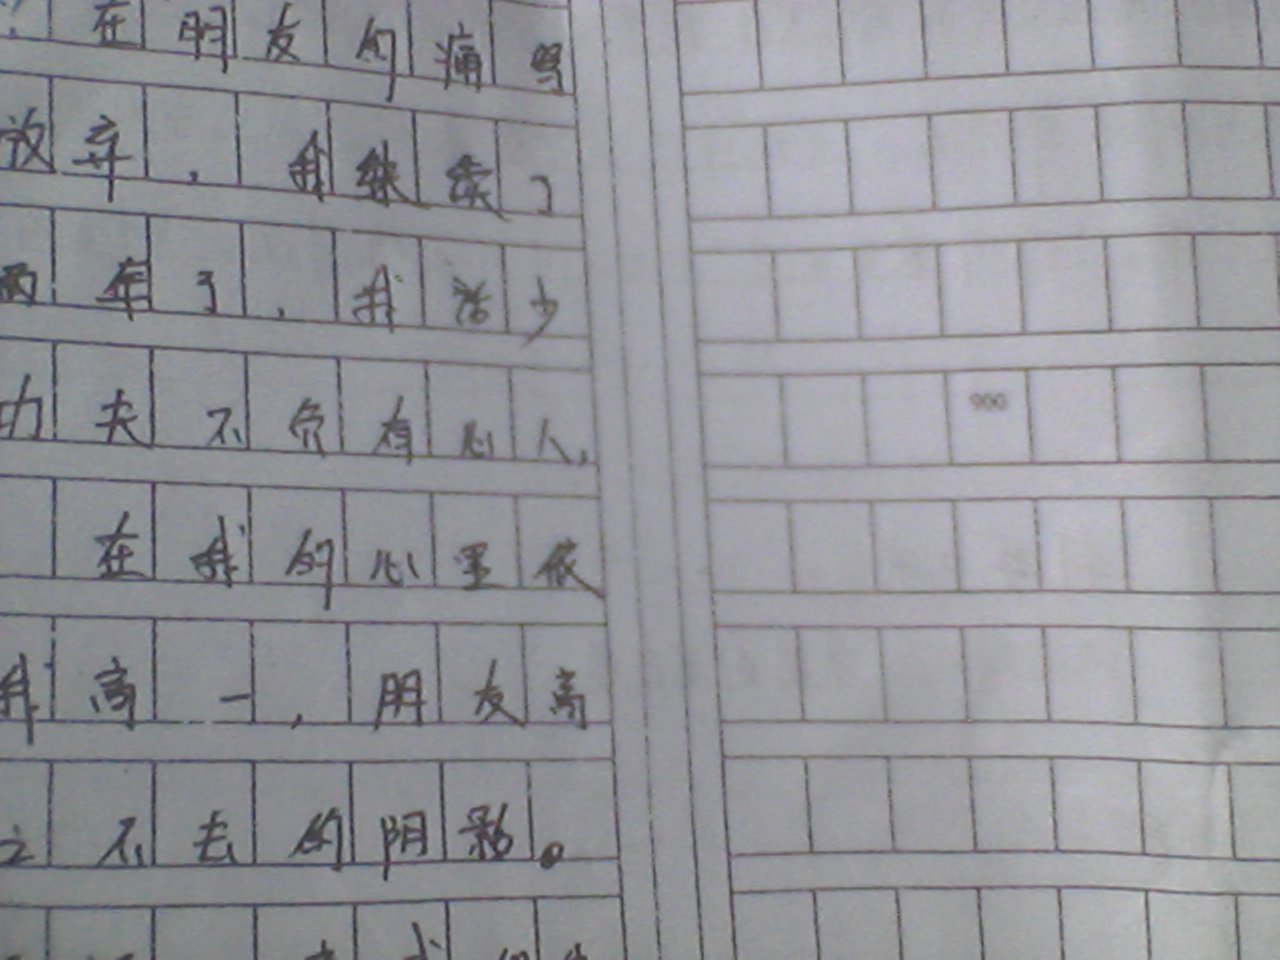 在朋友的痛骂
放弃，我继续了
两年了，我活少
功夫不负有心人，
在我的心里依
我高一，朋友高
之不去的阴影。
900